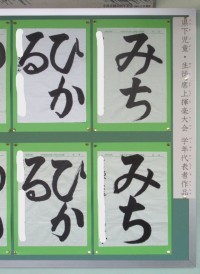 県下児童・生徒席上揮毫大会 学年代表者作品
みち
ひか
る
みち
ひか
る